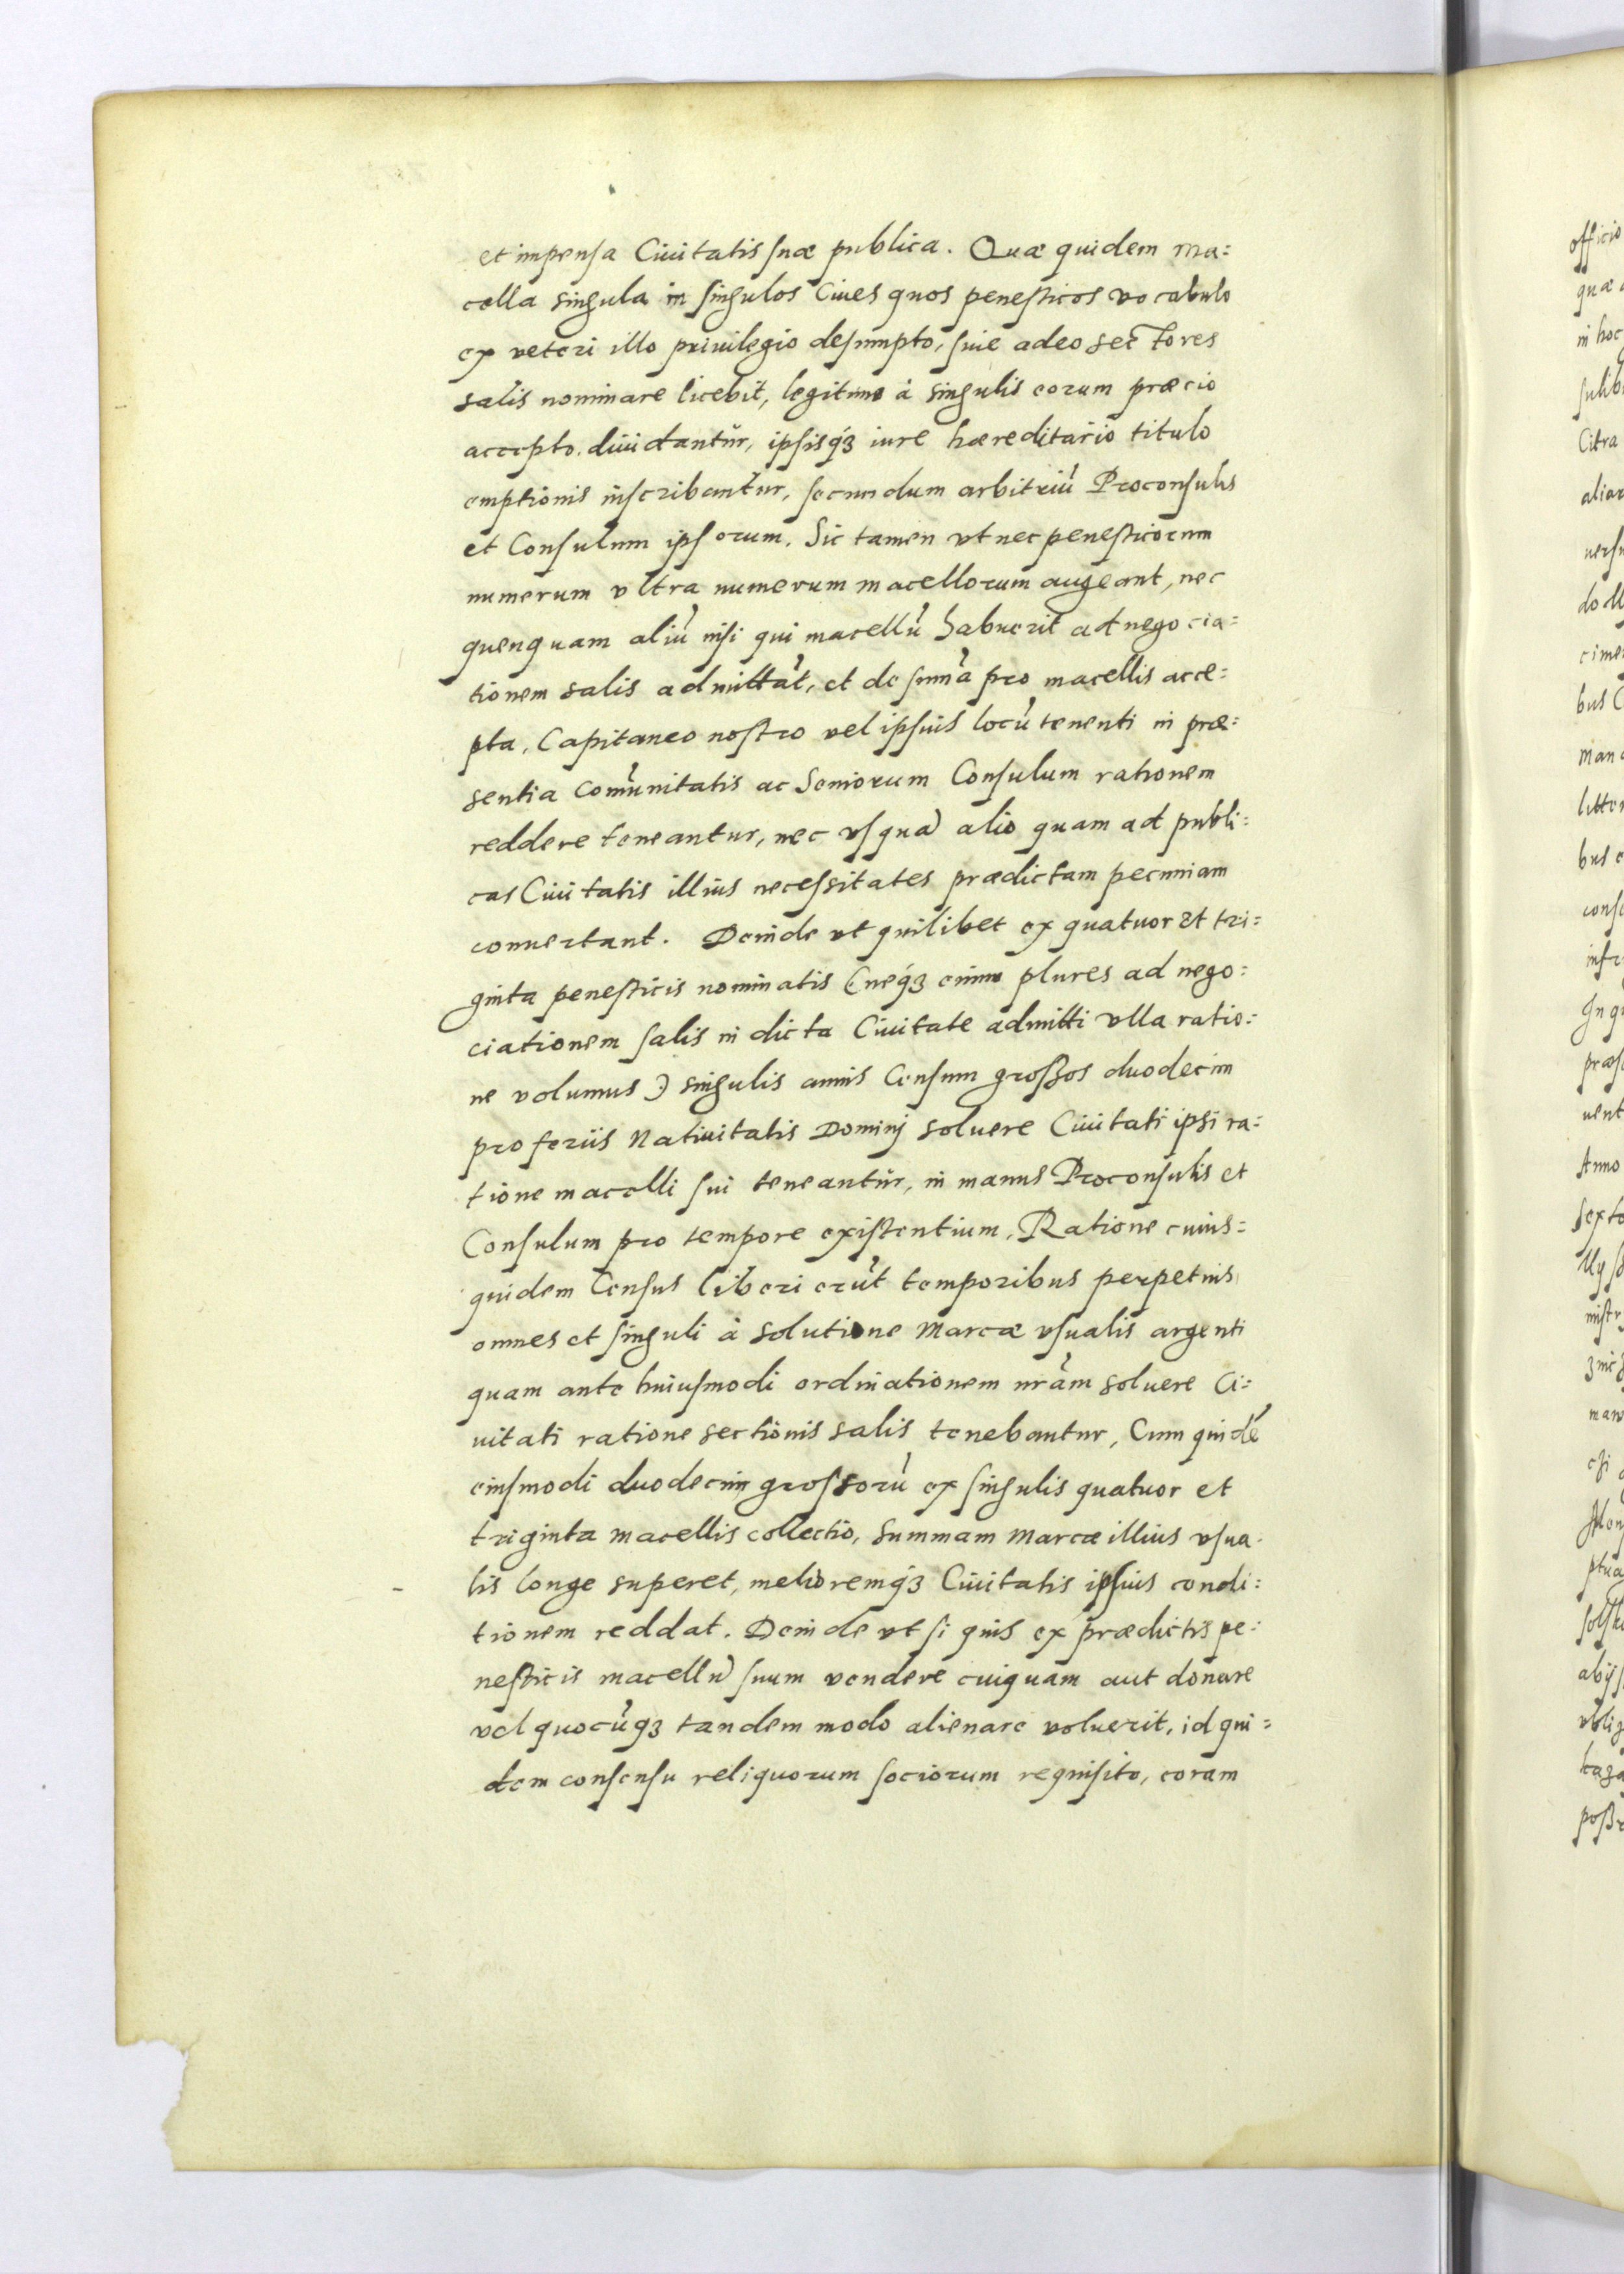 et impensa Ciuitatis suæ publica. Quæ quidem ma=
cella singula in singulos Ciues quos penesticos vocabulo
ex veteri illo priuilegio desumpto, siue adeo sectores
salis nominare licebit, legitimo à singulis eorum præcio
accepto diuidantur, ipsisq́ꝫ iure hæreditario titulo
emptionis inscribantur, secundum arbitriũ Proconsulis
et Consulum ipsorum. Sic tamen vt nec penesticorum
numerum vltra numerum macellorum augeant, nec
quenquam aliũ nisi qui macellũ habuerit ad negocia=
tionem salis admittãt, et de sum̃a pro macellis acce=
pta, Capitaneo nostro vel ipsius locũ tenenti in præ=
sentia Com̃unitatis ac Seniorum Consulum rationem
reddere teneantur, nec vsquã alio quam ad publi=
cas Ciuitatis illius necessitates prædictam pecuniam
conuertant. Deinde vt quilibet ex quatuor et tri=
ginta penesticis nominatis (neq́ꝫ enim plures ad nego=
ciationem salis in dicta Ciuitate admitti vlla ratio=
ne volumus) singulis annis Censum großos duodecim
pro ferijs Natiuitatis Dominj soluere Ciuitati ipsi ra=
tione macelli sui teneantur, in manus Proconsulis et
Consulum pro tempore existentium, Ratione cuius=
quidem Census liberi erũt temporibus perpetuis
omnes et singuli à solutione Marcæ vsualis argenti
quam ante huiusmodi ordinationem nr̃am soluere Ci=
uitati ratione sectionis salis tenebantur, Cum quidẽ
eiusmodi duodecim grossorũ ex singulis quatuor et
triginta macellis collectio, summam Marcæ illius vsua=
lis longe superet, melioremq́ꝫ Ciuitatis ipsius condi=
tionem reddat. Deinde vt si quis ex prædictis pe=
nesticis macellũ suum vendere cuiquam aut donare
vel quocũqꝫ tandem modo alienare voluerit, id qui=
dem consensu reliquorum sociorum requisito, coram